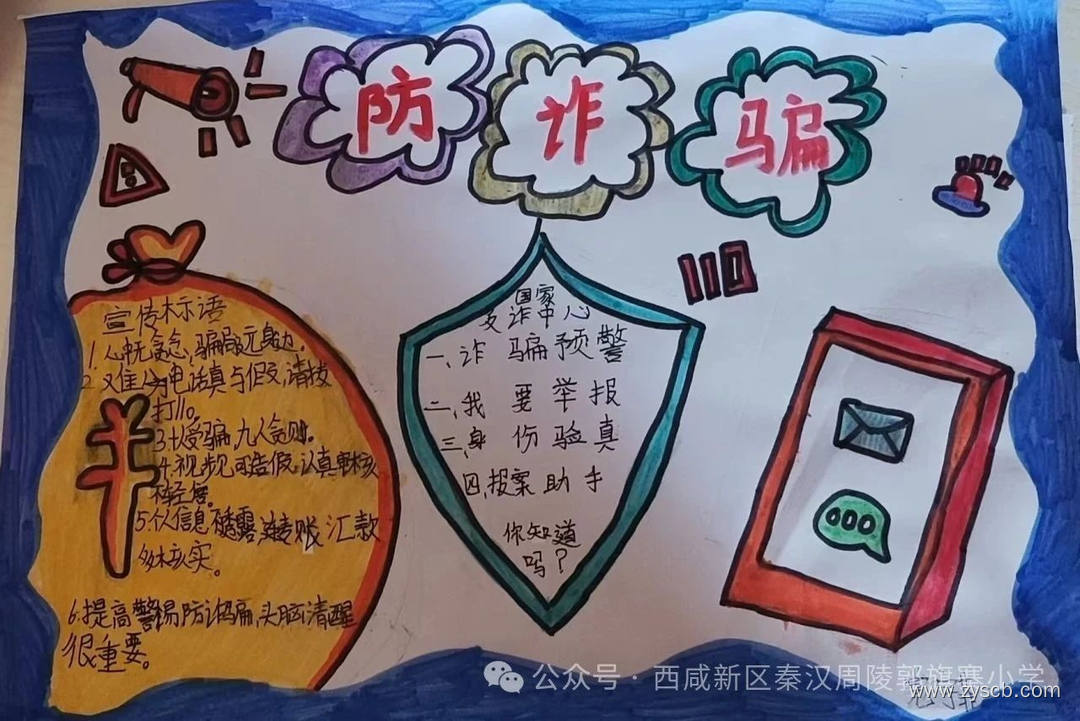 防诈骗
110
宣传标语
1.心无贪念,骗局无身边.
2.又佳分电话真与假,请拨
打110。
3.十人受骗,九人贪财。
4.视频可造假,认真审核
不轻信。
5.个人信息不透露,转账汇款
多核实。
6.提高警惕防诈骗,头脑清醒
很重要。
国家
反诈中心
一,诈骗预警
二,我要举报
三,身份验真
四,报案助手
你知道
吗?
公众号·西咸新区秦汉周陵郭旗寨小学
www.zyscb.com